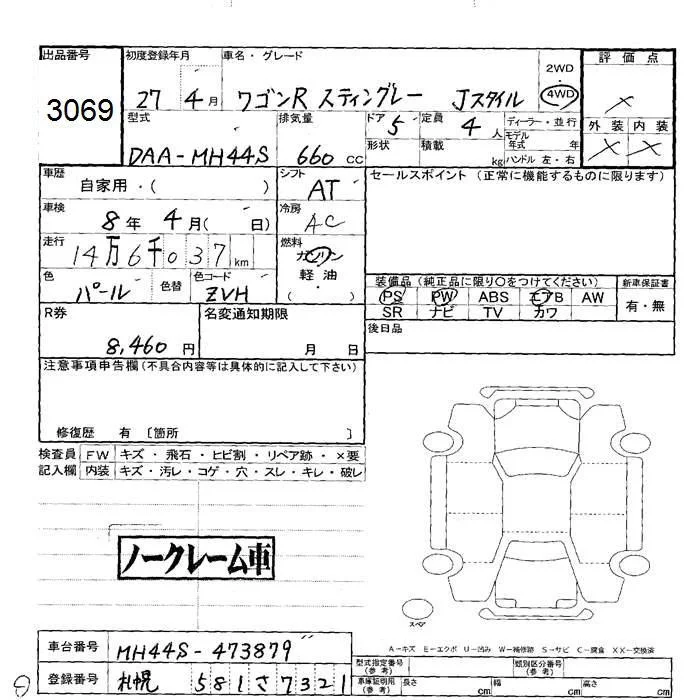 出品番号 初度登録年月 車名・グレード 2WD 評価点
3069 27 4月 ワゴンR スティングレー Jスタイル ・ 4WD ×
型式 排気量 ドア 5 定員 4人 ディーラー・並行 外装 内装
DAA-MH44S 660 CC 形状 積載 kg モデル年式 年 × ×
ハンドル 左・右
車歴 自家用・( ) シフト AT セールスポイント (正常に機能するものに限ります)
車検 8年 4月( 日) 冷房 AC
走行 14万6千037km 燃料 ガソリン
軽油
・
( )
色 パール 色替 色コード ZVH 装備品 (純正品に限り○をつけてください) 新車保証書
PS PW ABS エアB AW 有・無
SR ナビ TV カワ
R券 8,460円 名変通知期限 月 日 後日品
注意事項申告欄 (不具合内容等は具体的に記入して下さい)
修復歴 有 [箇所 ]
検査員 FW キズ・飛石・ヒビ割・リペア跡・×要
記入欄 内装 キズ・汚レ・コゲ・穴・スレ・キレ・破レ
ノークレーム車
スペア
A-キズ E-エクボ U-凹み W-補修跡 S-サビ C-腐食 XX-交換済
車台番号 MH44S-473879 型式指定番号(参考) 類別区分番号(参考)
登録番号 札幌 581さ7321 車庫証明用(参考) 長さ cm 幅 cm 高さ cm